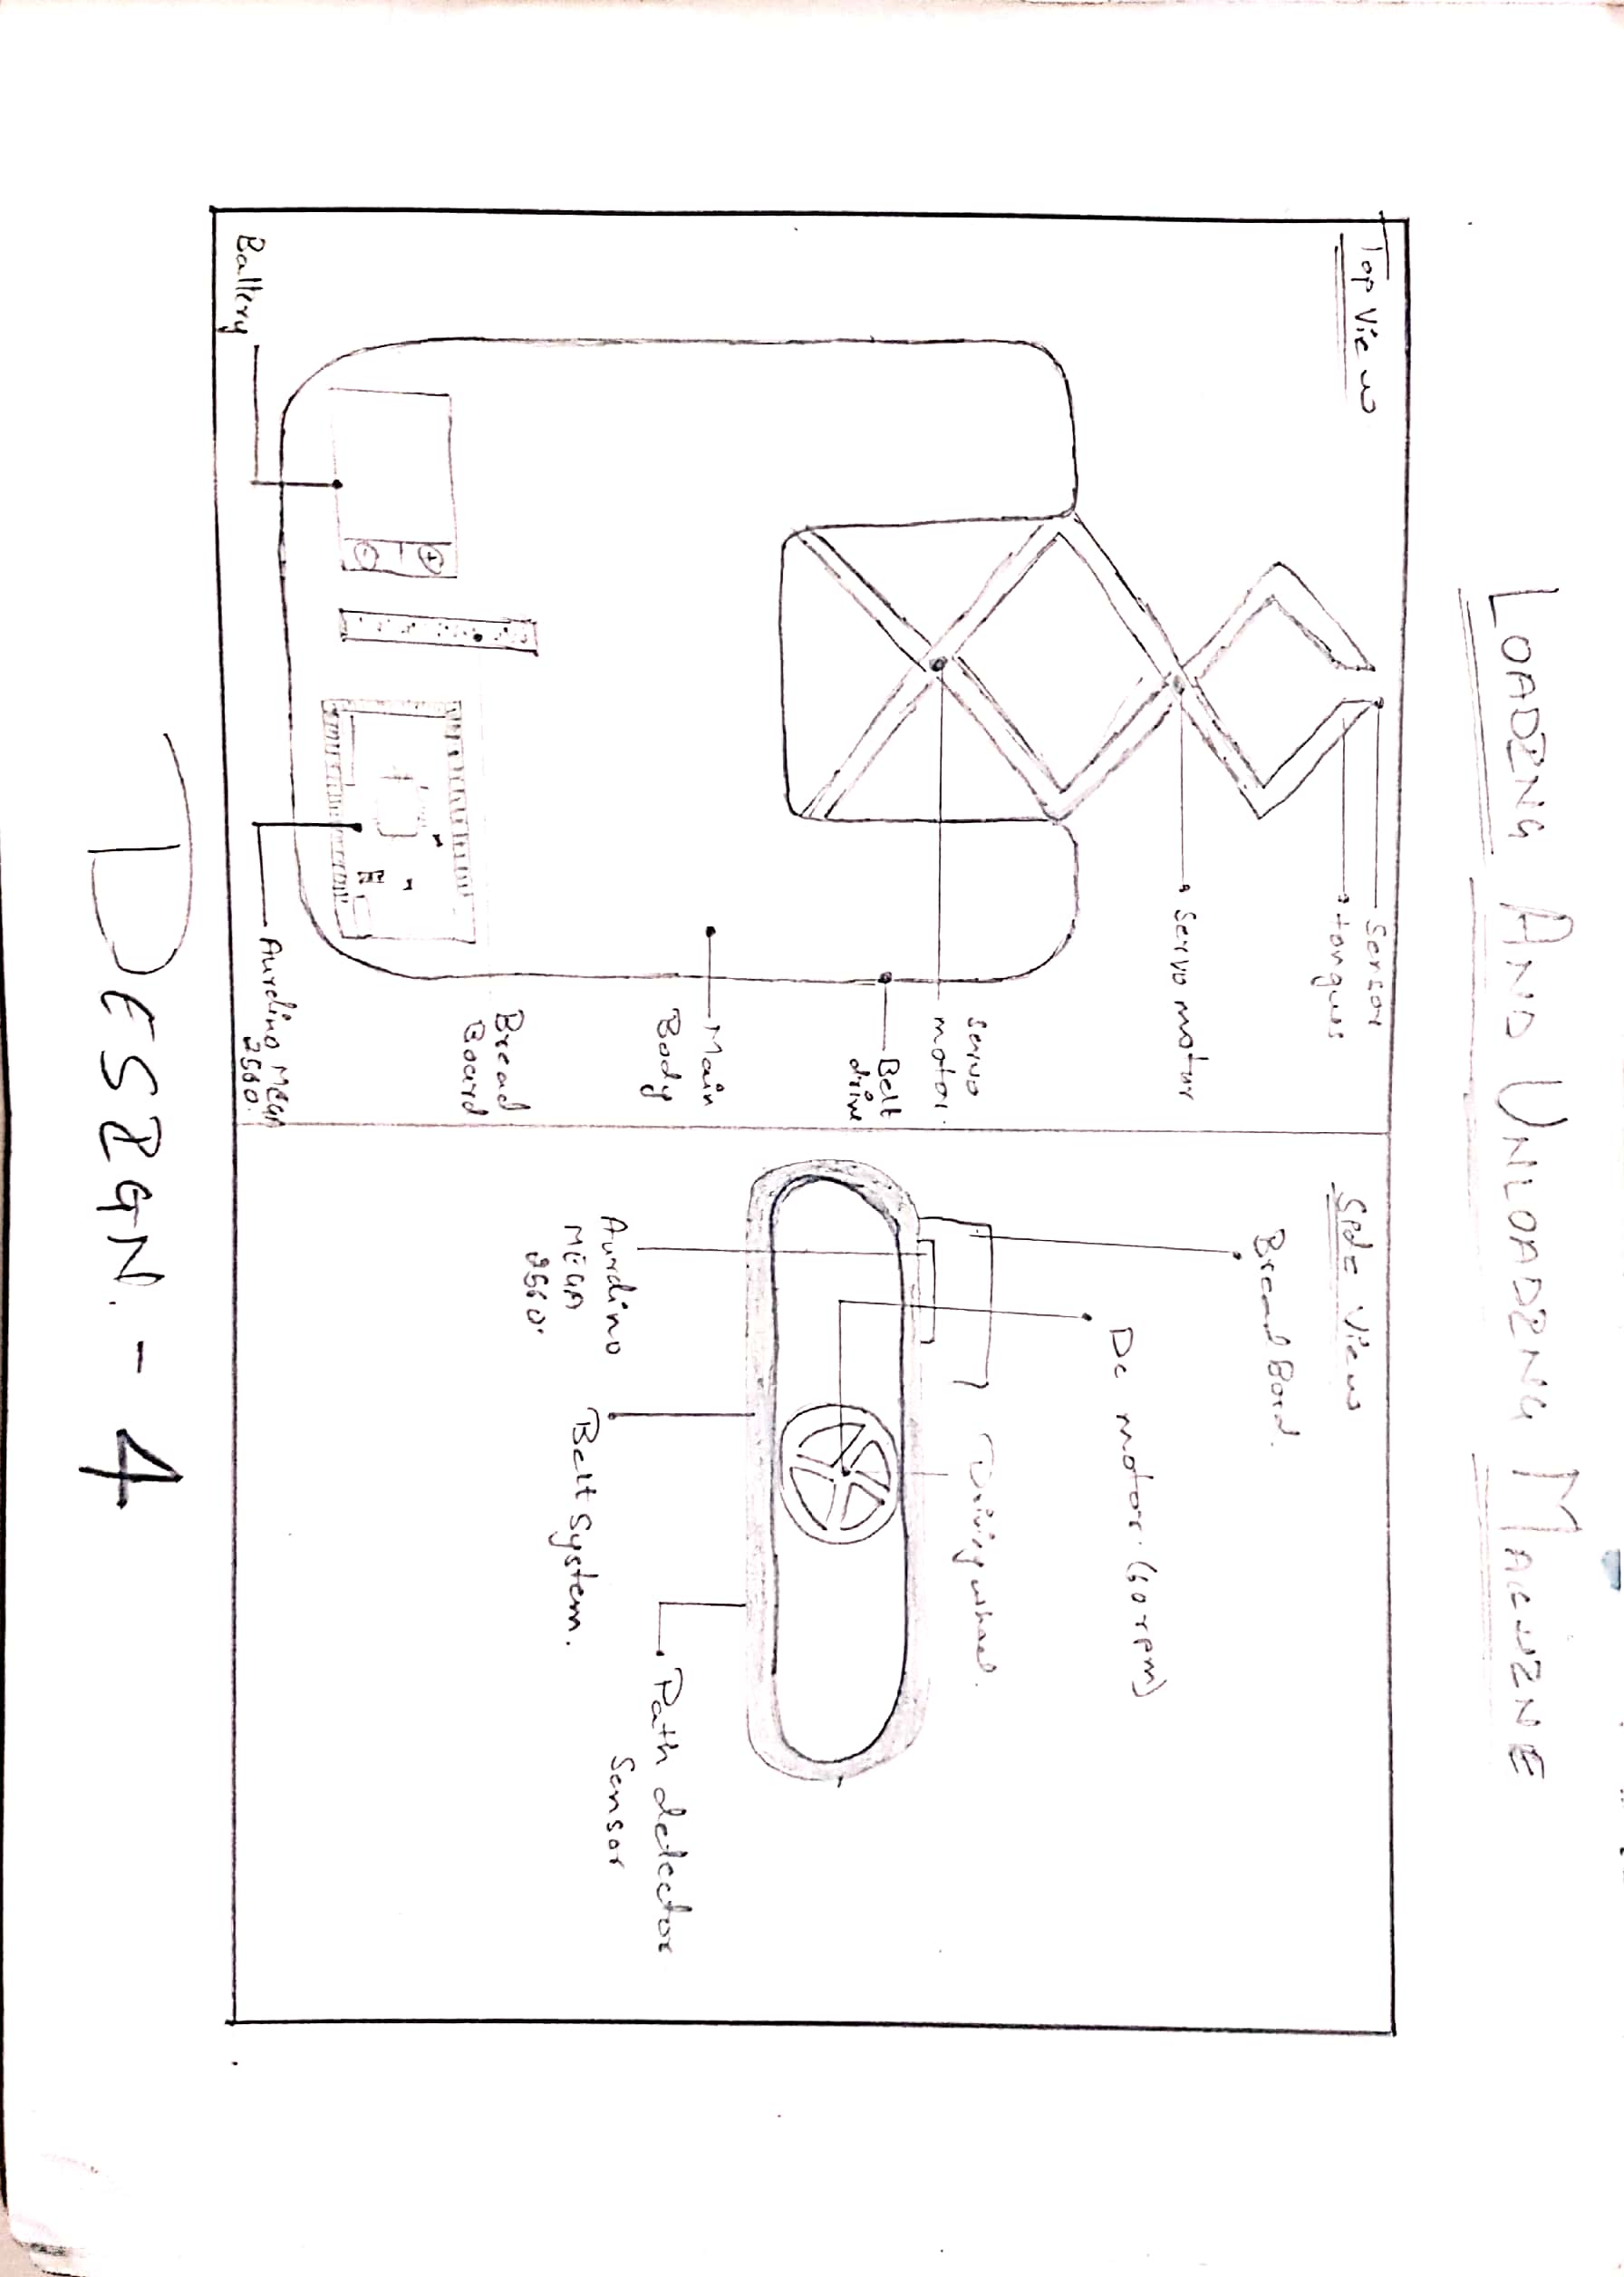 LOADING AND UNLOADING MACHINE
Top View
Sensor
tongues
Servo motor
Servo
motor.
Belt
drive
Main
Body
Bread
Board
Aurdino MEGA
2560.
Battery
+
-
Side View
Bread Bord.
Dc motor. (60 rpm)
Driving wheel.
Aurdino
MEGA
2560.
Belt System.
Path detector
Sensor
DESIGN. - 4